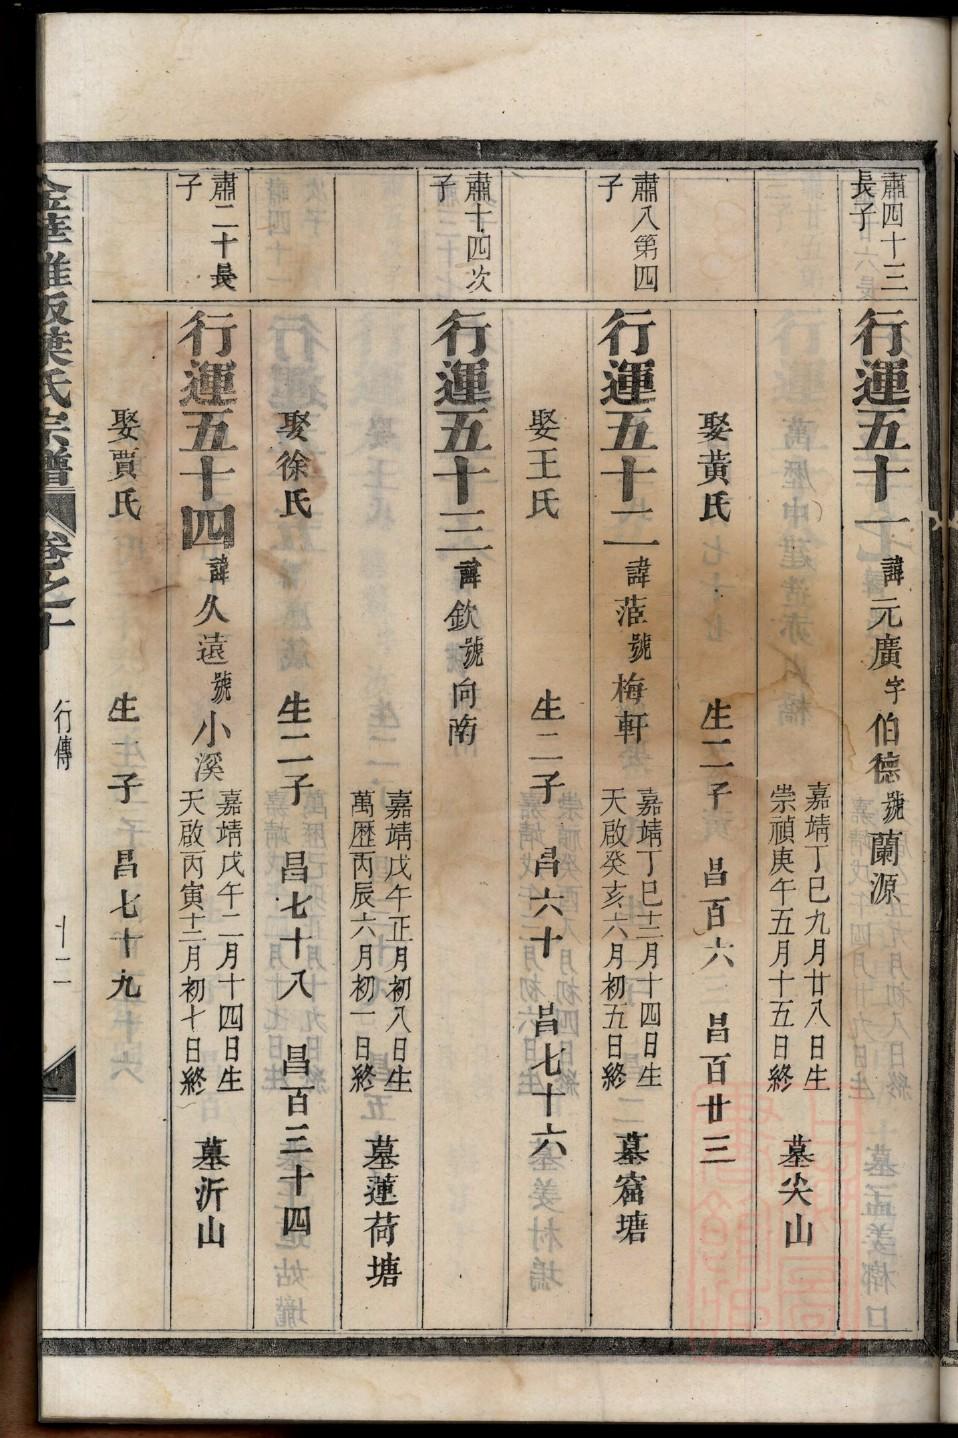 肅四十三
長子
行運五十一 諱元廣字伯德號蘭源
嘉靖丁巳九月廿八日生
崇禎庚午五月十五日終
墓尖山
娶黃氏 生二子 昌百六 昌百廿三
肅八第四
子
行運五十二 諱蒞號梅軒
嘉靖丁巳十二月十四日生
天啟癸亥六月初五日終
墓窟塘
娶王氏 生二子 昌六十 昌七十六
肅十四次
子
行運五十三 諱欽號向南
嘉靖戊午正月初八日生
萬歷丙辰六月初一日終
墓蓮荷塘
娶徐氏 生二子 昌七十八 昌百三十四
肅二十長
子
行運五十四 諱久遠號小溪
嘉靖戊午二月十四日生
天啟丙寅十二月初七日終
墓沂山
娶賈氏 生子 昌七十九
金華 葉氏宗譜 卷之十 行傳 十二